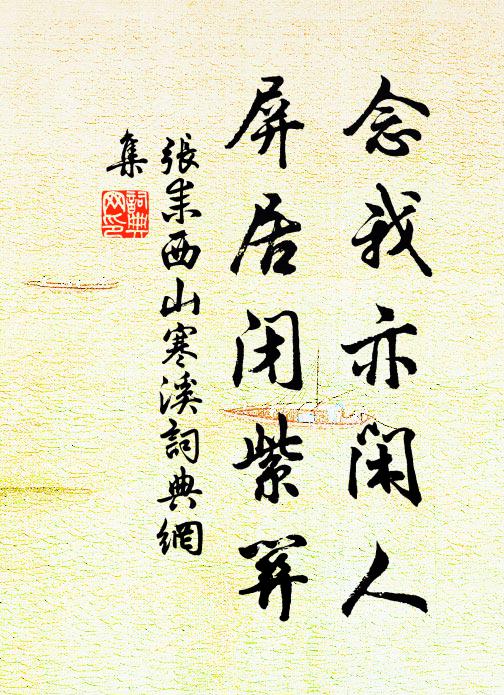 念我亦閑人
屏居闭紫荆
張耒西山寒溪詞典網
集
詞典
网印